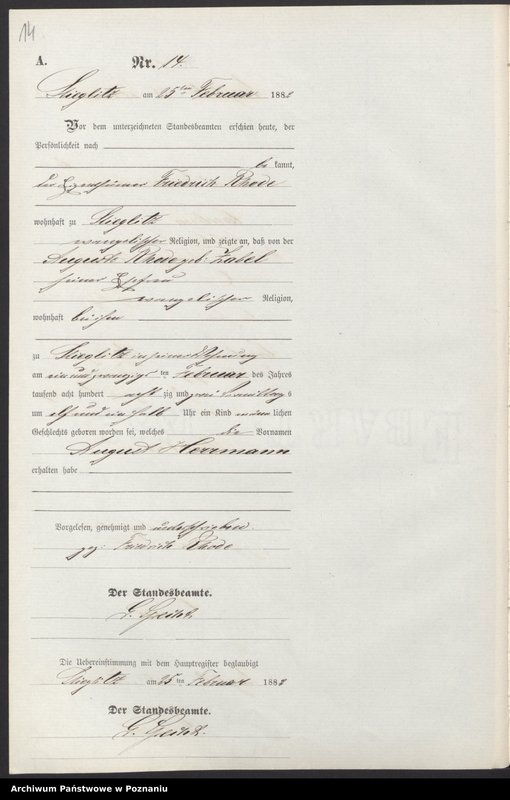 14
A. Nr. 14.
Stieglitz am 25ten Februar 1882
Vor dem unterzeichneten Standesbeamten erschien heute, der
Persönlichkeit nach
be kannt,
der Eigenthümer Friedrich Rhode
wohnhaft zu Stieglitz
evangelischer Religion, und zeigte an, daß von der
Auguste Rhode geb: Zabel
seiner Ehefrau
evangelischer Religion,
wohnhaft bei ihm
zu Stieglitz in seiner Wohnung
am ein und zwanzigsten Februar des Jahres
tausend acht hundert acht zig und zwei Vormittags
um elf und ein halb Uhr ein Kind männ lichen
Geschlechts geboren worden sei, welches die Vornamen
August Herrmann
erhalten habe
Vorgelesen, genehmigt und unterschrieben.
gez: Friedrich Rhode
Der Standesbeamte.
G.
Die Uebereinstimmung mit dem Hauptregister beglaubigt
Stieglitz am 25 ten Februar 1882
Der Standesbeamte.
G.
Archiwum Państwowe w Poznaniu